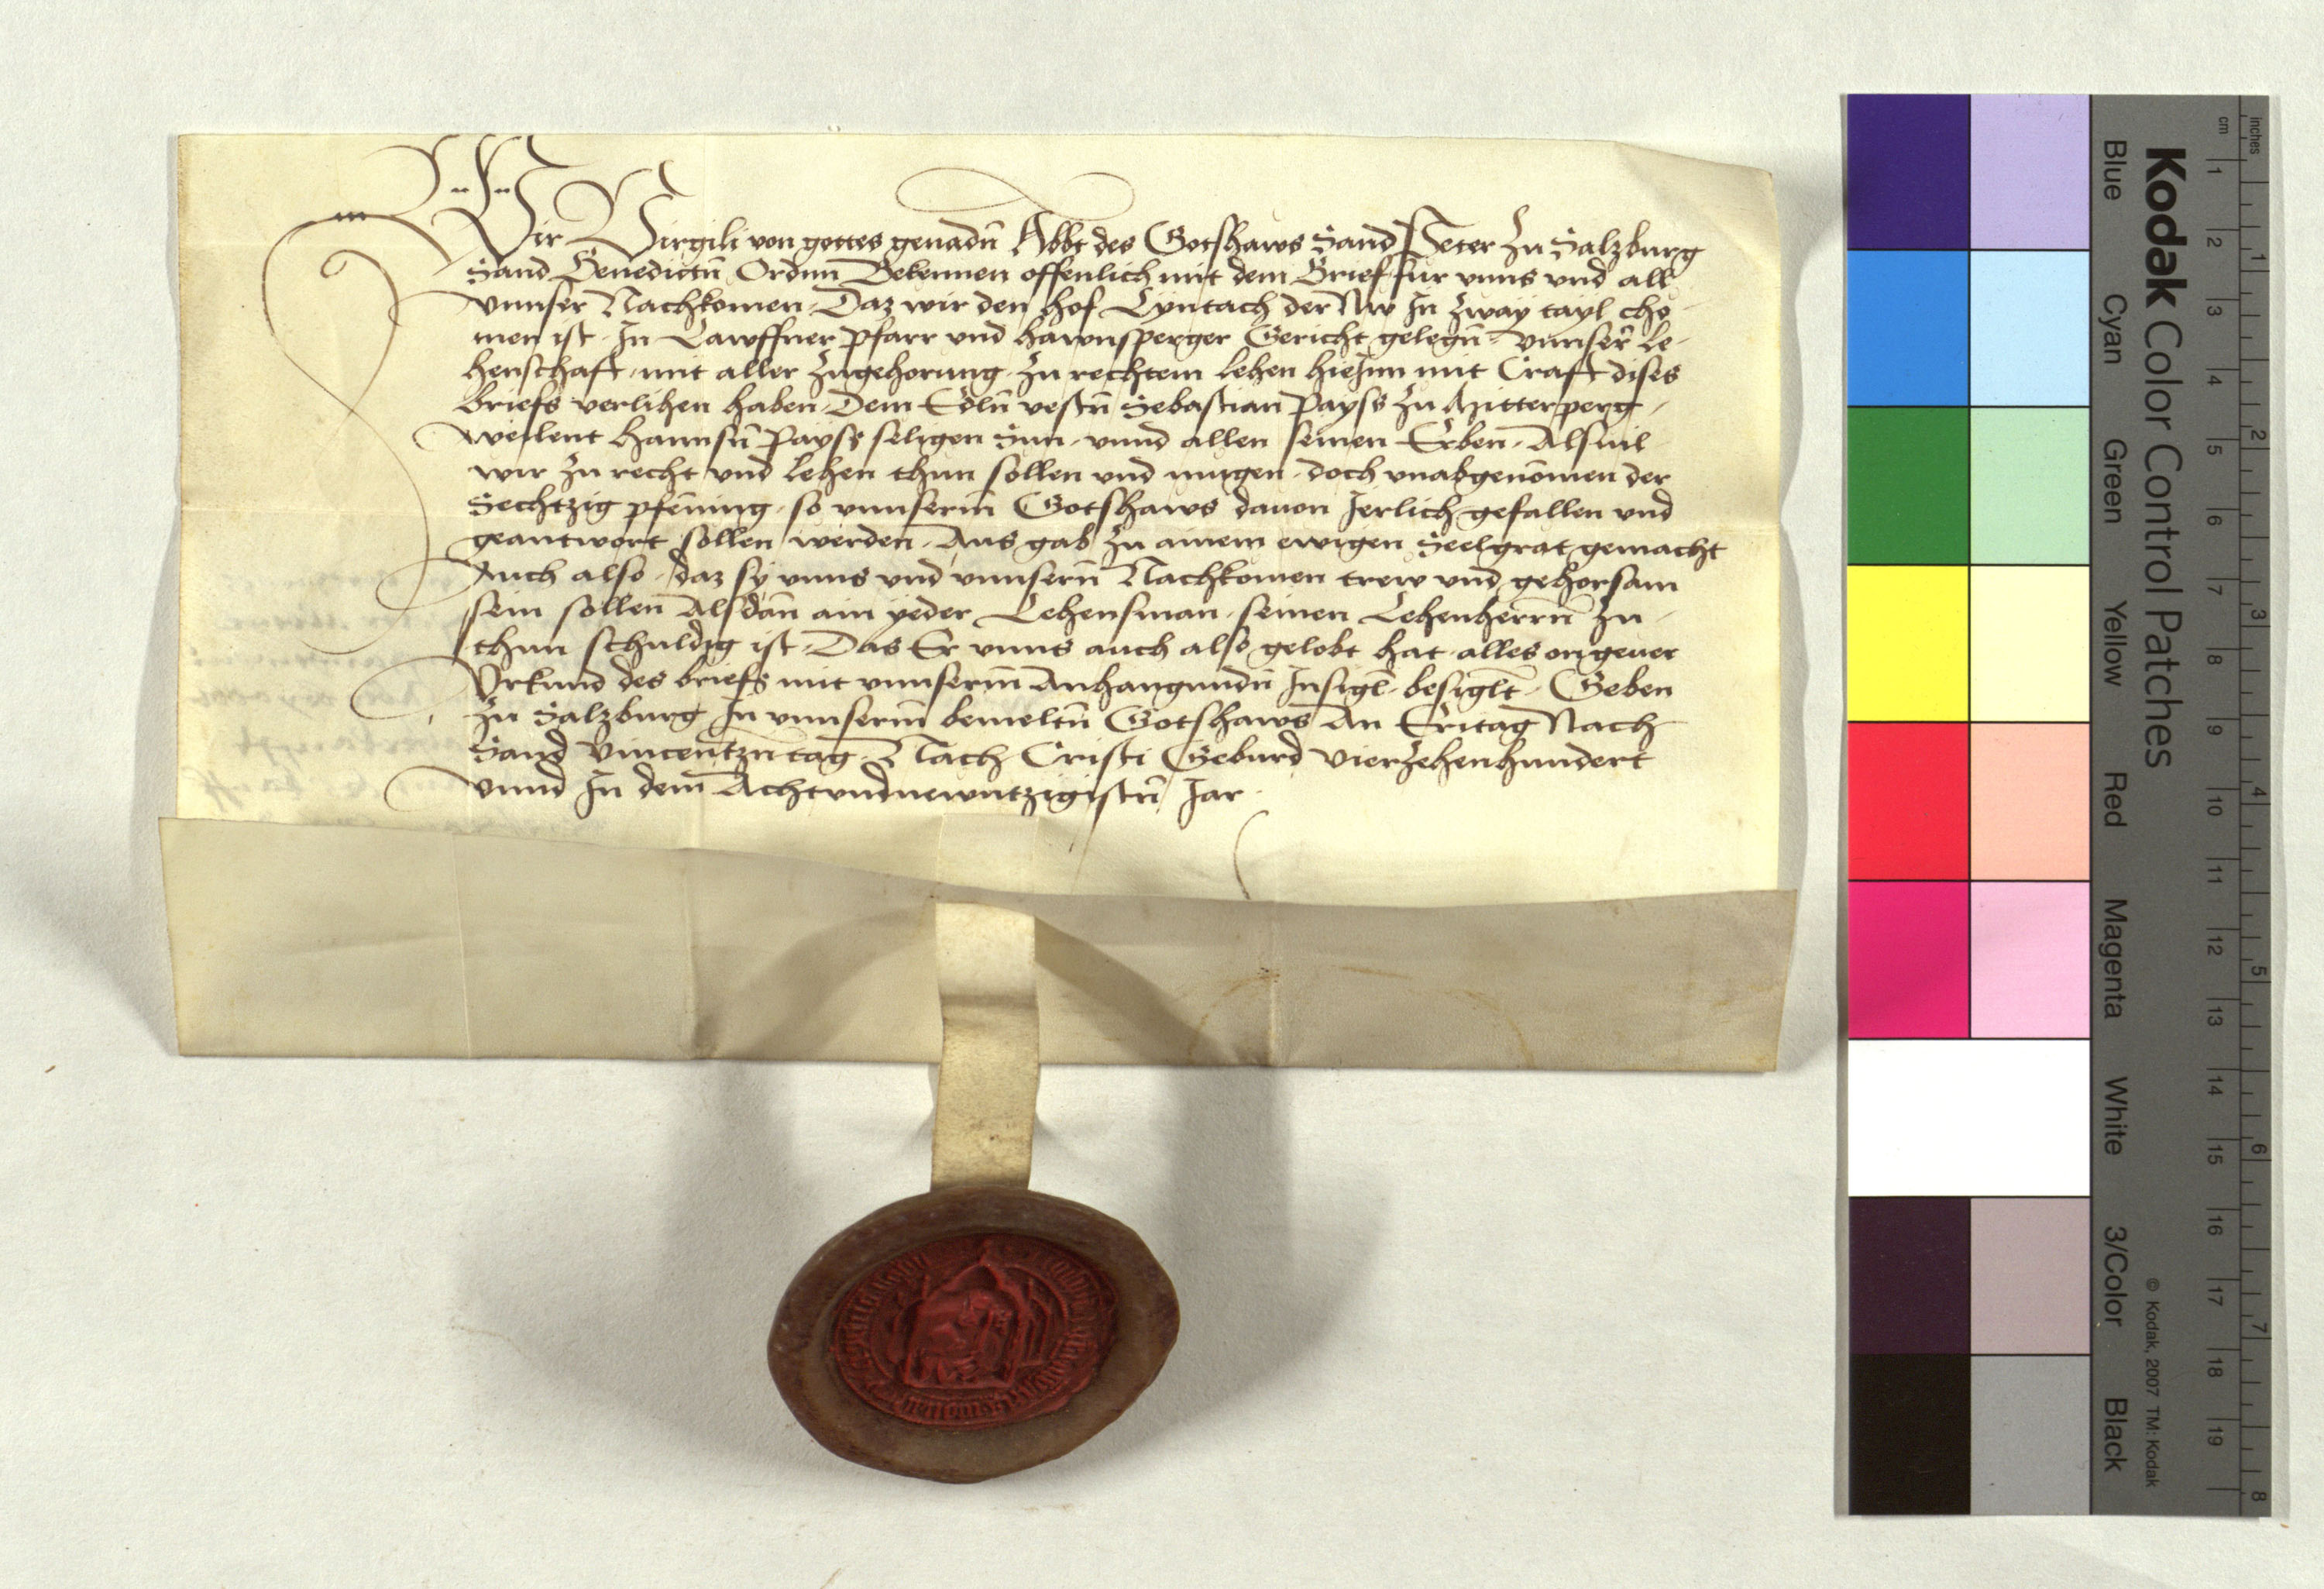 Wir Virgili von gottes genadn̄ Abbt des Gotshaws Sand Peter zu Salzburg
Sand Benedictn̄ Ordnn Bekennen offenlich mit dem Brief für vnns vnd all
vnnser Nachkomen. Daz wir den hof Lyntach der Nw In zway tayl cho-
men ist. In Lawffner pfarr vnd hawnsperger Gericht gelegn̄. vnnser̄ Le-
henschaft. mit aller zugehorung. zu rechtem lehen hieJnn mit Craft dises
Briefs verlihen haben. Dem Edln̄ vestn̄ Sebastian Payss zu Mitterperg.
weilent hannsn̄ Payss seligen Sun. vnnd allen seinen Erben. Alsuil
wir zu recht vnd lehen thun sollen vnd mugen. doch vnabgenōmen der
Sechtzig pfēning. so vnnserm̄ Gotshaws dauon Jerlich gefallen vnd
geantwort sollen werden. Aus gab zu ainem ewigen Seelgrat gemacht
Auch also. daz sy vnns vnd vnnsern̄ Nachkomen trew vnd gehorsam
sein sollen Alsdān ain yeder Lehensman. seinen Lehenherrn̄ zu
thun schuldig ist. Das Er vnns auch also gelobt hat. alles ongeuer
Vrkund des briefs mit vnnserm̄ Anhangundn̄ Insigl̄. besiglt̄. Geben
zu Salzburg In vnnserm̄ bemeltn̄ Gotshaws An Eritag Nach
Sand Vincentzn̄tag. Nach Cristi Geburd Vierzehenhundert
vnnd In dem̄ Achtvndnewntzigistn̄ Jar.
Kodak Color Control Patches
Blue Cyan Green Yellow Red Magenta White 3/Color Black
© Kodak, 2007 TM: Kodak
inches 1 2 3 4 5 6 7 8
cm 1 2 3 4 5 6 7 8 9 10 11 12 13 14 15 16 17 18 19